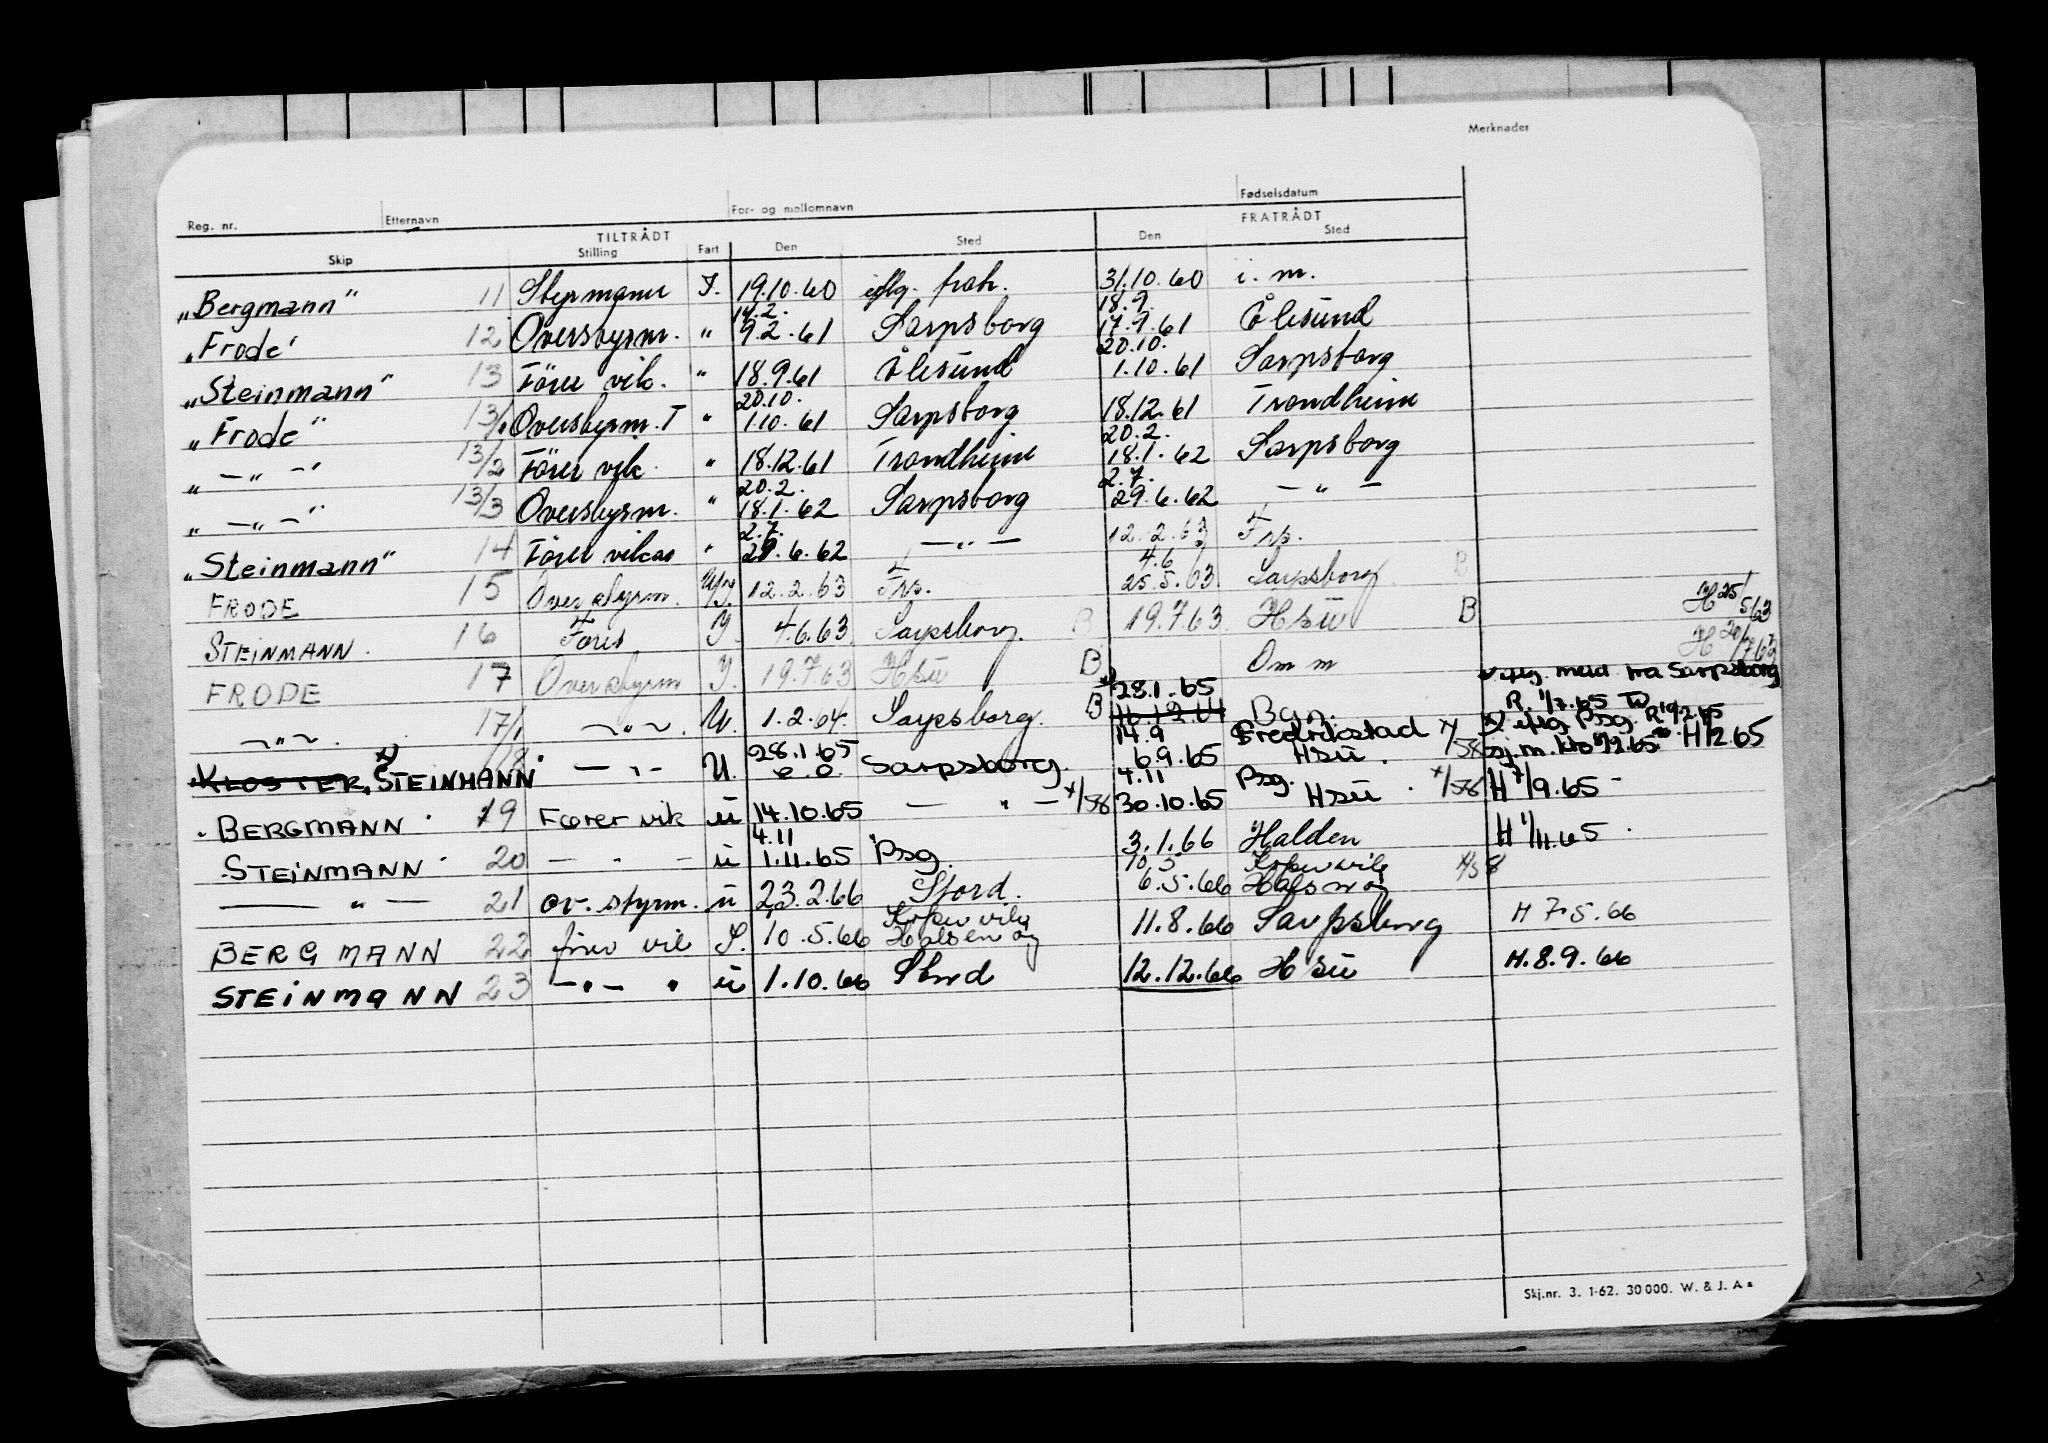 Merknader
Reg. nr. Etternavn For- og mellomnavn Fødselsdatum
TILTRÅDT FRATRÅDT
Skip Stilling Fart Den Sted Den Sted
"Bergmann" 11 Styrmann I. 19.10.60 iflg. frakr. 31.10.60 i. m.
14.2. 18.9.
"Frode" 12 Overstyrm. " 9.2.61 Sarpsborg 17.9.61 Ålesund
20.10.
"Steinmann" 13 Förer vik. " 18.9.61 Ålesund 1.10.61 Sarpsborg
20.10.
"Frode" 13/1 Overstyrm. I " 1.10.61 Sarpsborg 18.12.61 Trondheim
20.2.
" — " — " 13/2 Förer vik. " 18.12.61 Trondheim 18.1.62 Sarpsborg
20.2. 2.7.
" — " — " 13/3 Overstyrm. " 18.1.62 Sarpsborg 29.6.62 — " —
2.7.
"Steinmann" 14 Förer vikar " 29.6.62 — " — 12.2.63 Frs.
4.6
FRODE 15 Overstyrm. 12.2.63 Frs. 25.5.63 Sarpsborg B H 25/5 63
STEINMANN 16 Förer I. 4.6.63 Sarpsborg B 19.7.63 Hsü B H 20/7.63
FRODE 17 Overstyrm I. 19.7.63 Hsü B Om m iflg. meld. fra Sarpsborg
28.1.65 R. 1/7.65 TW
— " — 17/1 — " — U. 1.2.64 Sarpsborg. B 16.12.64 Bgn. x) iflg Psg. R 19/2.65
28.1.65 14.9 Fredrikstad x/58 sj.m. kto 9/2.65 H 1/2 65
KLOSTER, x) STEINMANN 18 — " — U. e.o. Sarpsborg. 6.9.65 Hsü.
4.11 Psg.
BERGMANN 19 Fører vik ü 14.10.65 — " — x/58 30.10.65 Hsü x/58 H 7/9.65
4.11
STEINMANN 20 — " — ü 1.11.65 Psg. 3.1.66 Halden H 1/11.65
10.5 Kopervik x/58
— " — 21 ov. styrm. ü 23.2.66 Stord. 6.5.66 Halsnøy
Kopervik
BERGMANN 22 förer vik I. 10.5.66 Halsenøy 11.8.66 Sarpsborg H 7.5.66
STEINMANN 23 — " — " ü 1.10.66 Stord 12.12.66 Hsü H. 8.9.66
Skj.nr. 3. 1-62. 30000. W. & J. A s